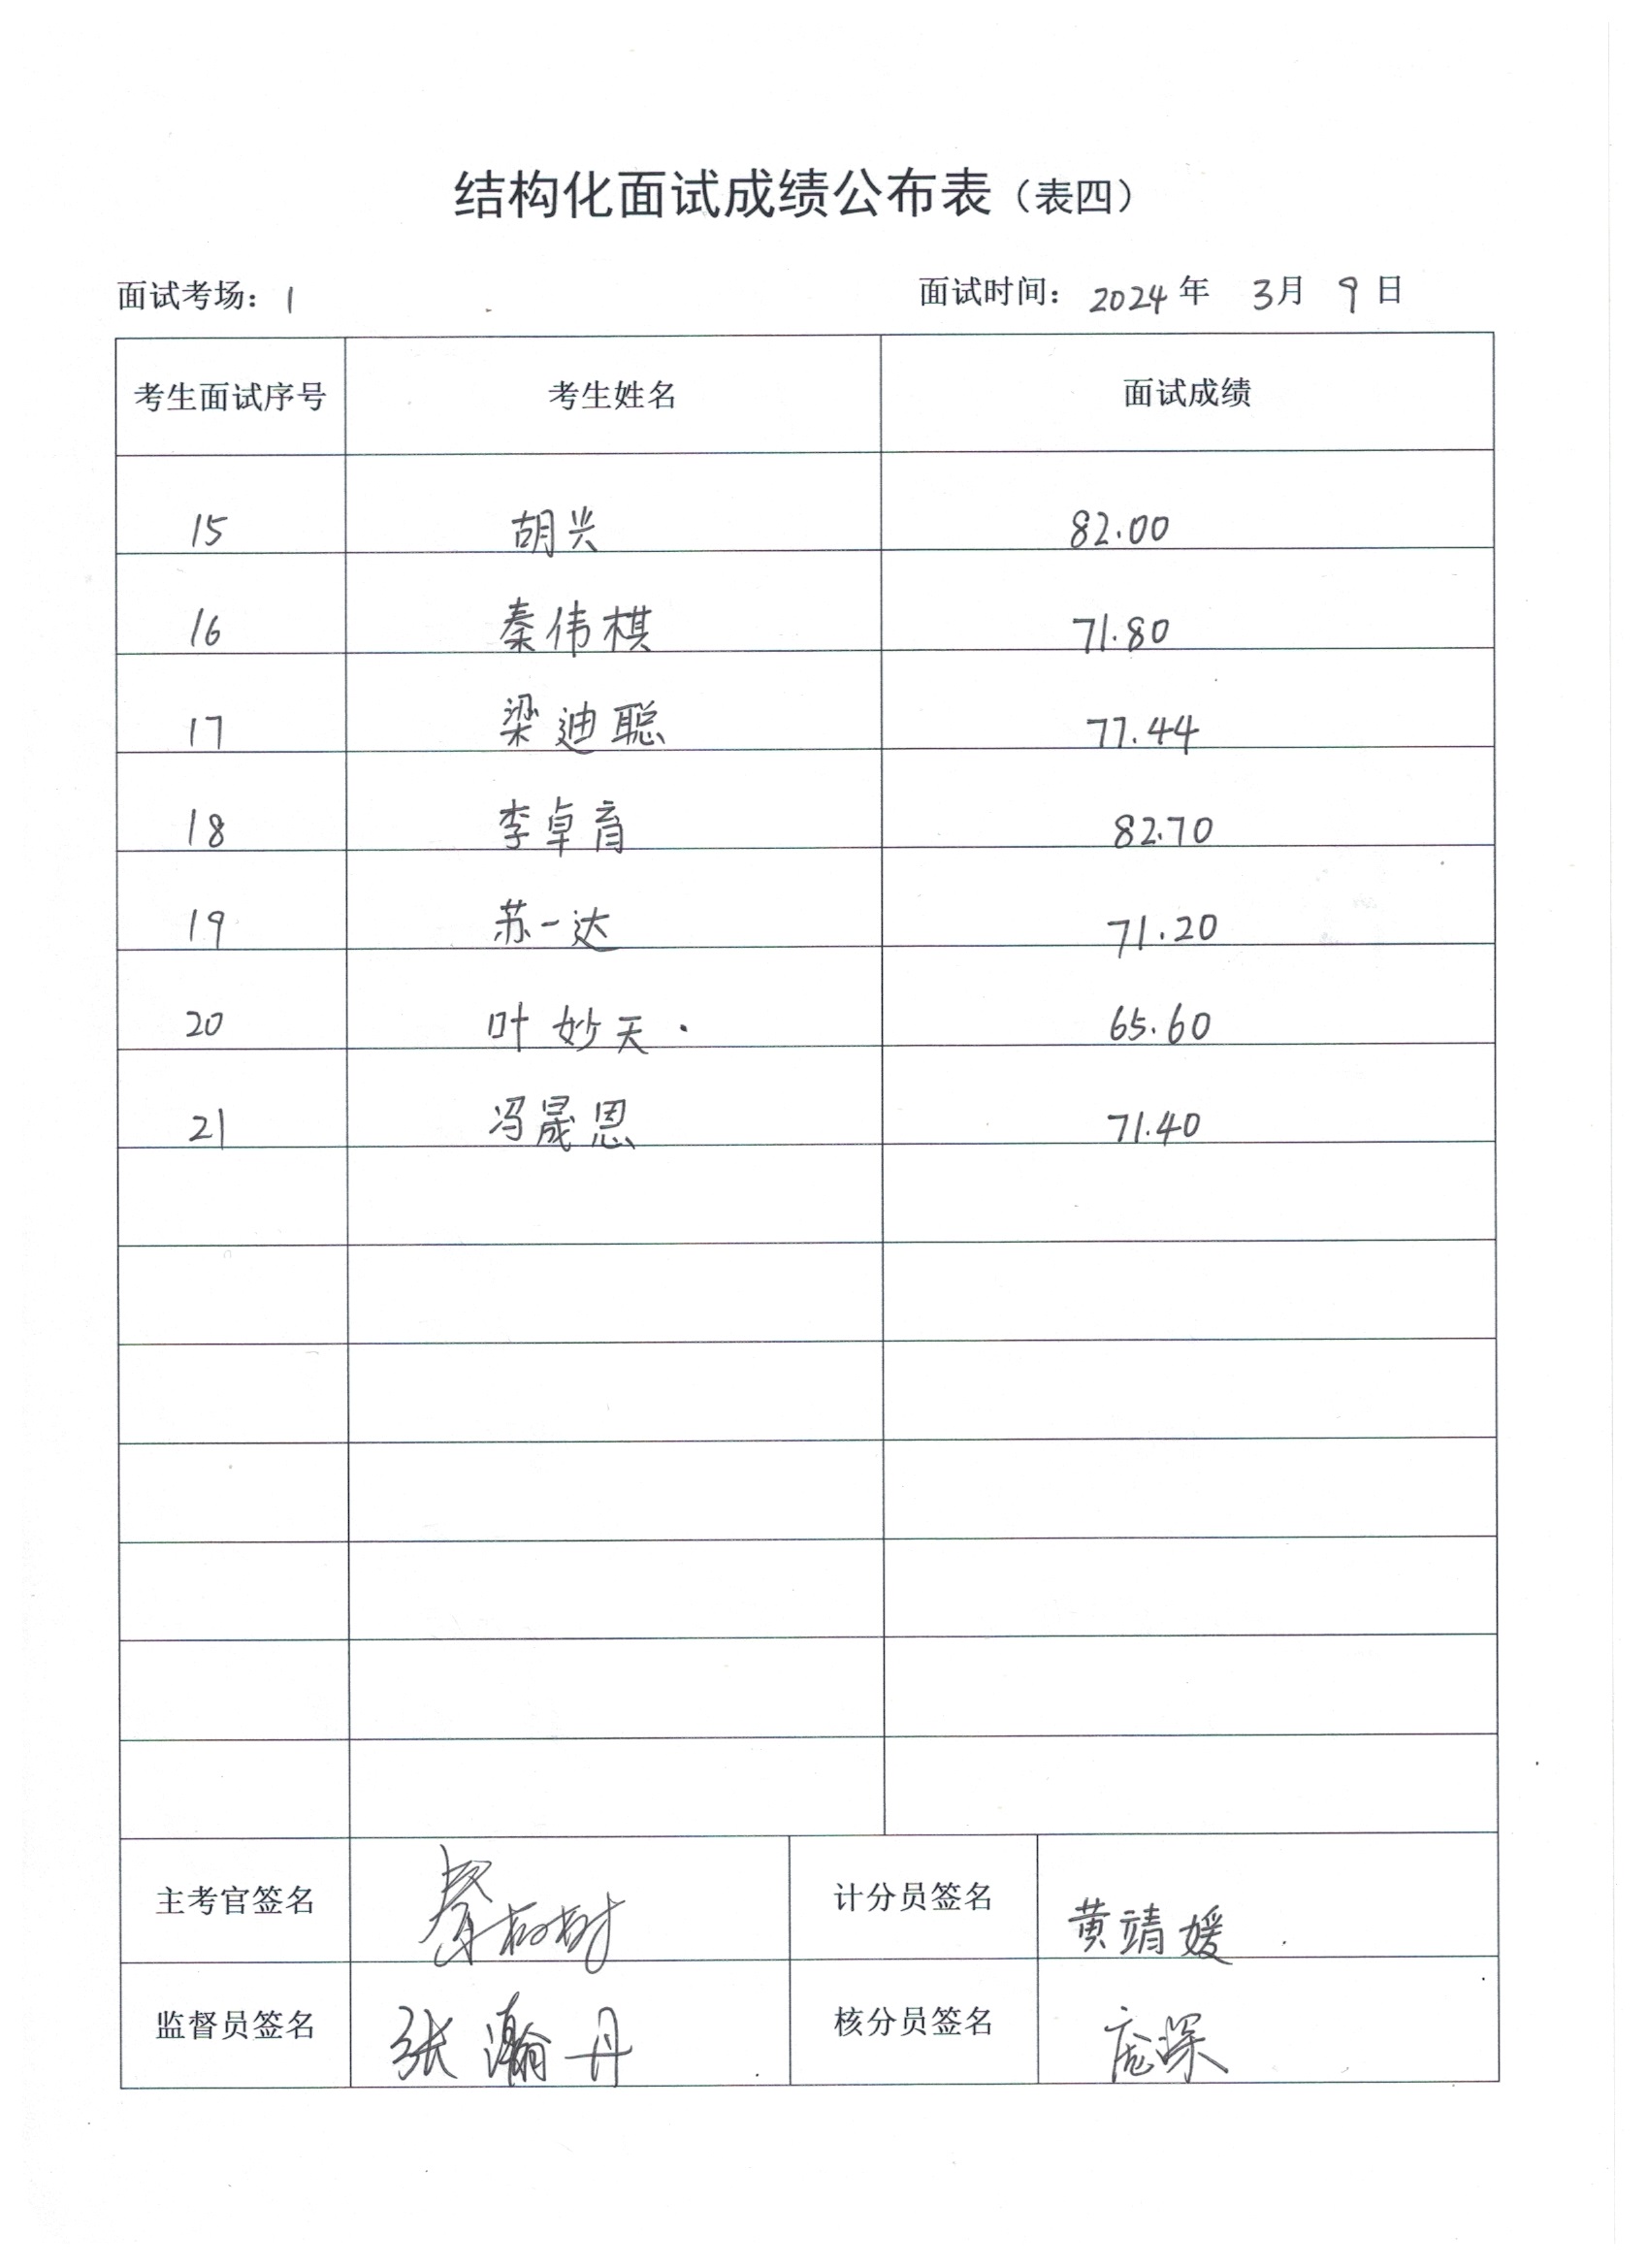 结构化面试成绩公布表（表四）
面试考场：1 面试时间：2024年 3月 9日
考生面试序号 考生姓名 面试成绩
15 胡兴 82.00
16 秦伟棋 71.80
17 梁迪聪 77.44
18 李卓育 82.70
19 苏一达 71.20
20 叶妙天 65.60
21 冯晟恩 71.40
主考官签名 计分员签名 黄靖媛
监督员签名 张瀚丹 核分员签名 庞深